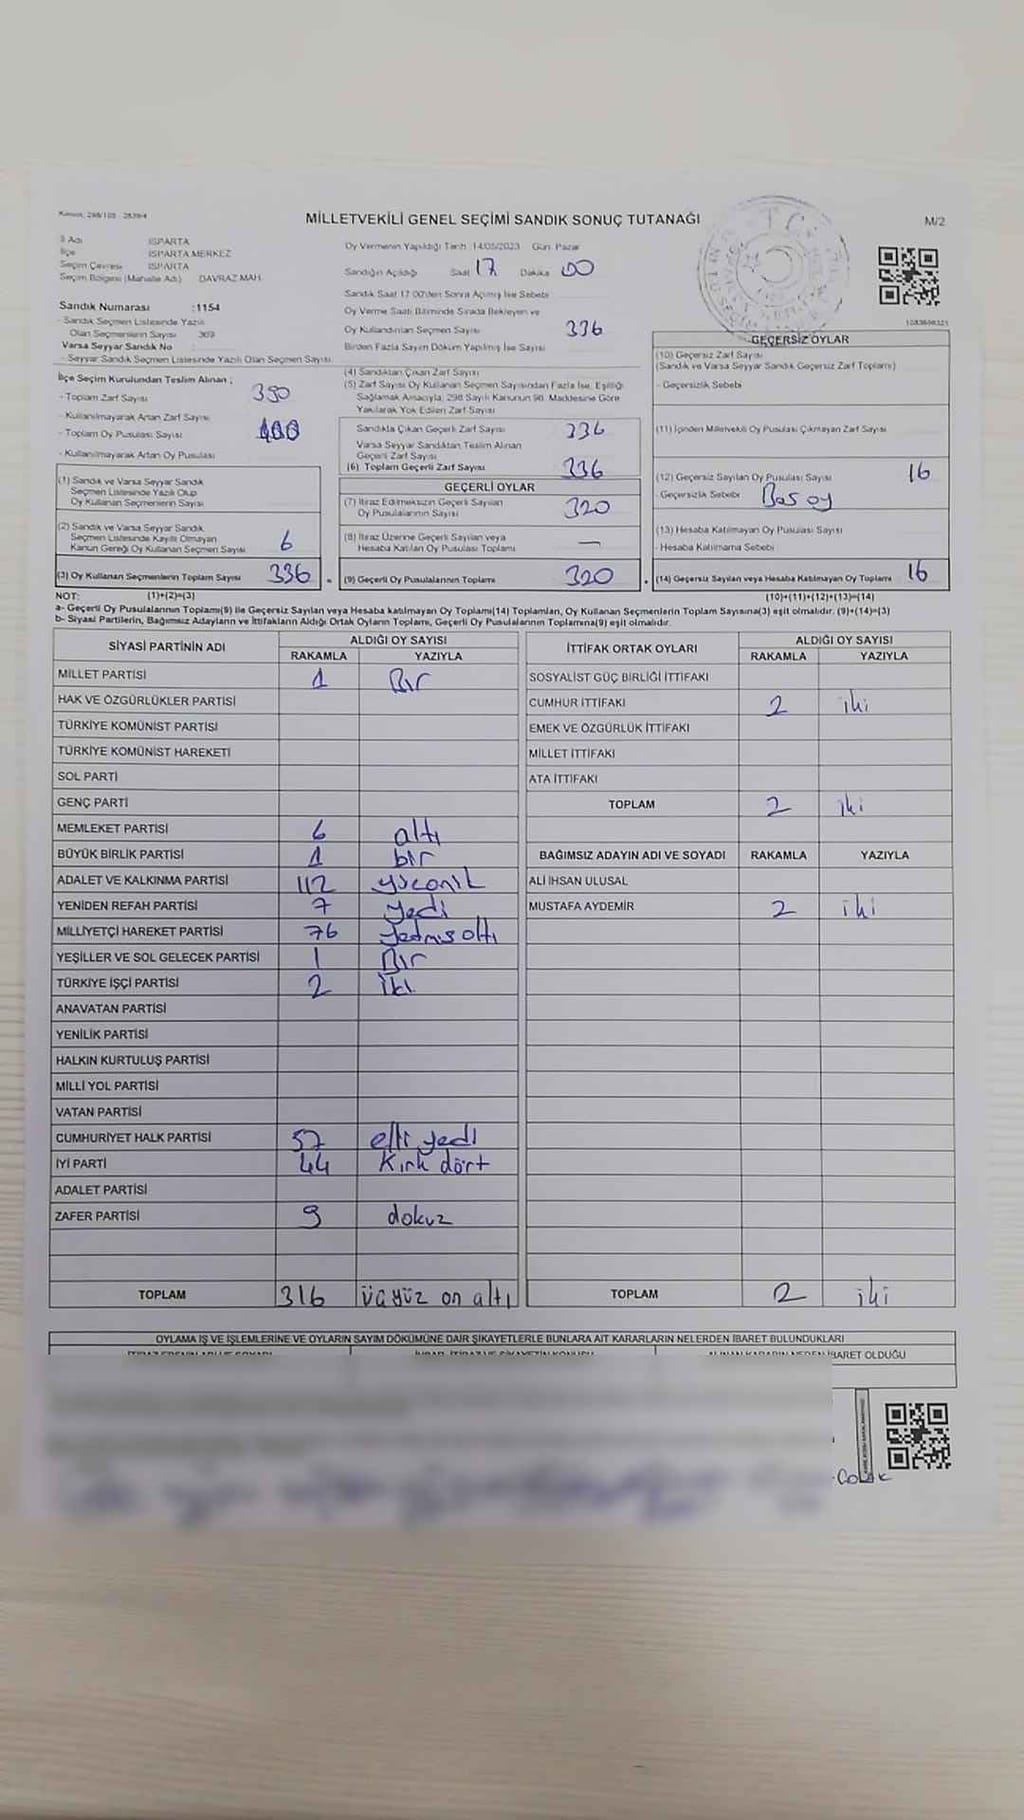 MİLLETVEKİLİ GENEL SEÇİMİ SANDIK SONUÇ TUTANAĞI
M/2
İl Adı ISPARTA
İlçe ISPARTA MERKEZ
Seçim Çevresi ISPARTA
Seçim Bölgesi (Mahalle Adı) DAVRAZ MAH.
Oy Vermenin Yapıldığı Tarih :14/05/2023 Gün: Pazar
Sandığın Açıldığı Saat 17 Dakika 00
Sandık Saat 17:00'den Sonra Açılmış İse Sebebi
Oy Verme Saati Bitiminde Sırada Bekleyen ve
Oy Kullandırılan Seçmen Sayısı 336
Birden Fazla Sayım Döküm Yapılmış İse Sayısı
Sandık Numarası :1154
- Sandık Seçmen Listesinde Yazılı
Olan Seçmenlerin Sayısı 369
Varsa Seyyar Sandık No
- Seyyar Sandık Seçmen Listesinde Yazılı Olan Seçmen Sayısı
İlçe Seçim Kurulundan Teslim Alınan ;
- Toplam Zarf Sayısı 390
- Kullanılmayarak Artan Zarf Sayısı
- Toplam Oy Pusulası Sayısı
- Kullanılmayarak Artan Oy Pusulası
(1) Sandık ve Varsa Seyyar Sandık
Seçmen Listesinde Yazılı Olup
Oy Kullanan Seçmenlerin Sayısı
(2) Sandık ve Varsa Seyyar Sandık
Seçmen Listesinde Kayıtlı Olmayan
Kanun Gereği Oy Kullanan Seçmen Sayısı 6
(3) Oy Kullanan Seçmenlerin Toplam Sayısı 336
(4) Sandıktan Çıkan Zarf Sayısı
(5) Zarf Sayısı Oy Kullanan Seçmen Sayısından Fazla İse, Eşitliği
Sağlamak Amacıyla; 298 Sayılı Kanunun 98. Maddesine Göre
Yakılarak Yok Edilen Zarf Sayısı
Sandıkta Çıkan Geçerli Zarf Sayısı 336
Varsa Seyyar Sandıktan Teslim Alınan
Geçerli Zarf Sayısı
(6) Toplam Geçerli Zarf Sayısı 336
GEÇERLİ OYLAR
(7) İtiraz Edilmeksizin Geçerli Sayılan
Oy Pusulalarının Sayısı 320
(8) İtiraz Üzerine Geçerli Sayılan veya
Hesaba Katılan Oy Pusulası Toplamı —
(9) Geçerli Oy Pusulalarının Toplamı 320
GEÇERSİZ OYLAR
(10) Geçersiz Zarf Sayısı
(Sandık ve Varsa Seyyar Sandık Geçersiz Zarf Toplamı)
- Geçersizlik Sebebi
(11) İçinden Milletvekili Oy Pusulası Çıkmayan Zarf Sayısı
(12) Geçersiz Sayılan Oy Pusulası Sayısı 16
- Geçersizlik Sebebi Boş oy
(13) Hesaba Katılmayan Oy Pusulası Sayısı
- Hesaba Katılmama Sebebi
(14) Geçersiz Sayılan veya Hesaba Katılmayan Oy Toplamı 16
NOT: (1)+(2)=(3) (10)+(11)+(12)+(13)=(14)
a- Geçerli Oy Pusulalarının Toplamı(9) ile Geçersiz Sayılan veya Hesaba katılmayan Oy Toplamı(14) Toplamları, Oy Kullanan Seçmenlerin Toplam Sayısına(3) eşit olmalıdır. (9)+(14)=(3)
b- Siyasi Partilerin, Bağımsız Adayların ve İttifakların Aldığı Ortak Oyların Toplamı, Geçerli Oy Pusulalarının Toplamına(9) eşit olmalıdır.
SİYASİ PARTİNİN ADI ALDIĞI OY SAYISI
RAKAMLA YAZIYLA
MİLLET PARTİSİ 1 Bir
HAK VE ÖZGÜRLÜKLER PARTİSİ
TÜRKİYE KOMÜNİST PARTİSİ
TÜRKİYE KOMÜNİST HAREKETİ
SOL PARTİ
GENÇ PARTİ
MEMLEKET PARTİSİ 6 altı
BÜYÜK BİRLİK PARTİSİ 1 bir
ADALET VE KALKINMA PARTİSİ 112 yüzoniki
YENİDEN REFAH PARTİSİ 7 yedi
MİLLİYETÇİ HAREKET PARTİSİ 76 yetmişaltı
YEŞİLLER VE SOL GELECEK PARTİSİ 1 Bir
TÜRKİYE İŞÇİ PARTİSİ 2 İki
ANAVATAN PARTİSİ
YENİLİK PARTİSİ
HALKIN KURTULUŞ PARTİSİ
MİLLİ YOL PARTİSİ
VATAN PARTİSİ
CUMHURİYET HALK PARTİSİ 57 elli yedi
İYİ PARTİ 44 Kırk dört
ADALET PARTİSİ
ZAFER PARTİSİ 9 dokuz
TOPLAM 316 üçyüz on altı
İTTİFAK ORTAK OYLARI ALDIĞI OY SAYISI
RAKAMLA YAZIYLA
SOSYALİST GÜÇ BİRLİĞİ İTTİFAKI
CUMHUR İTTİFAKI 2 iki
EMEK VE ÖZGÜRLÜK İTTİFAKI
MİLLET İTTİFAKI
ATA İTTİFAKI
TOPLAM 2 iki
BAĞIMSIZ ADAYIN ADI VE SOYADI RAKAMLA YAZIYLA
ALİ İHSAN ULUSAL
MUSTAFA AYDEMİR 2 iki
TOPLAM 2 iki
OYLAMA İŞ VE İŞLEMLERİNE VE OYLARIN SAYIM DÖKÜMÜNE DAİR ŞİKAYETLERLE BUNLARA AİT KARARLARIN NELERDEN İBARET BULUNDUKLARI
İBARET OLDUĞU
Çolak